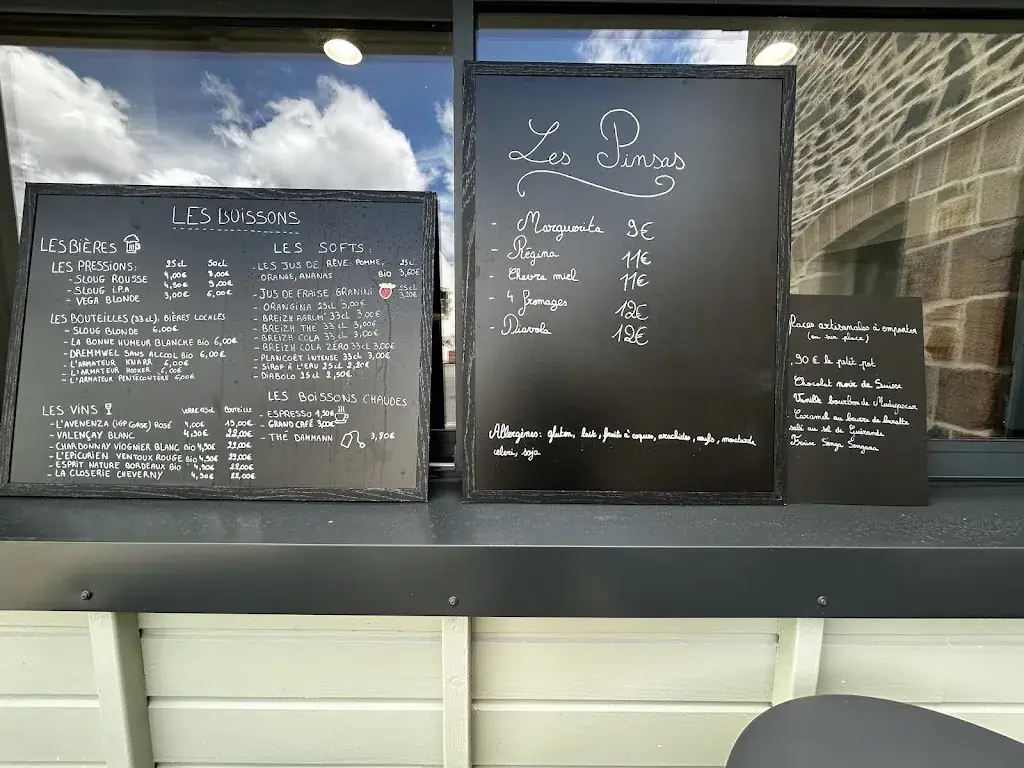 LES BOISSONS
LES BIÈRES
LES PRESSIONS: 25cl 50cl
- SLOUG ROUSSE 4,00€ 9,00€
- SLOUG IPA 4,50€ 9,00€
- VEGA BLONDE 3,00€ 6,00€
LES BOUTEILLES (33cl), BIÈRES LOCALES
- SLOUG BLONDE 6,00€
- LA BONNE HUMEUR BLANCHE Bio 6,00€
- DREMMWEL SANS ALCOOL Bio 6,00€
- L'ARMATEUR KNARR 6,00€
- L'ARMATEUR HOOKER 6,00€
- L'ARMATEUR PENTECONTÈRE 6,00€
LES VINS VERRE BOUTEILLE
- L'AVENENZA (IGP CORSE) ROSÉ 4,00€ 19,00€
- VALENÇAY BLANC 4,50€ 22,00€
- CHARDONNAY VIOGNIER BLANC Bio 4,90€ 22,00€
- L'EPICURIEN VENTOUX ROUGE Bio 4,50€ 21,00€
- ESPRIT NATURE BORDEAUX Bio 4,90€ 22,00€
- LA CLOSERIE CHEVERNY 4,50€ 22,00€
LES SOFTS:
- LES JUS DE RÊVE: POMME, 25cl
ORANGE, ANANAS Bio 3,60€
- JUS DE FRAISE GRANINI 25cl 3,20€
- ORANGINA 25cl 3,00€
- BREIZH AGRUM' 33cl 3,00€
- BREIZH THÉ 33cl 3,00€
- BREIZH COLA 33cl 3,00€
- BREIZH COLA ZÉRO 33cl 3,00€
- PLANCOËT INTENSE 33cl 3,00€
- SIROP À L'EAU 25cl 2,20€
- DIABOLO 25cl 2,50€
LES BOISSONS CHAUDES
- ESPRESSO 1,50€
- GRAND CAFÉ 3,00€
- THÉ DAMMANN 3,80€
Les Pinsas
- Marguerita 9€
- Régina 11€
- Chèvre miel 11€
- 4 fromages 12€
- Diavola 12€
Allergènes: gluten, lait, fruits à coques, arachides, œufs, moutarde
céleri, soja
laces artisanales à emporter
(ou sur place)
,90 € le petit pot
Chocolat noir de Suisse
Vanille bourbon de Madagascar
Caramel au beurre de baratte
salé au sel de Guérande
Fraise Senga Sengana